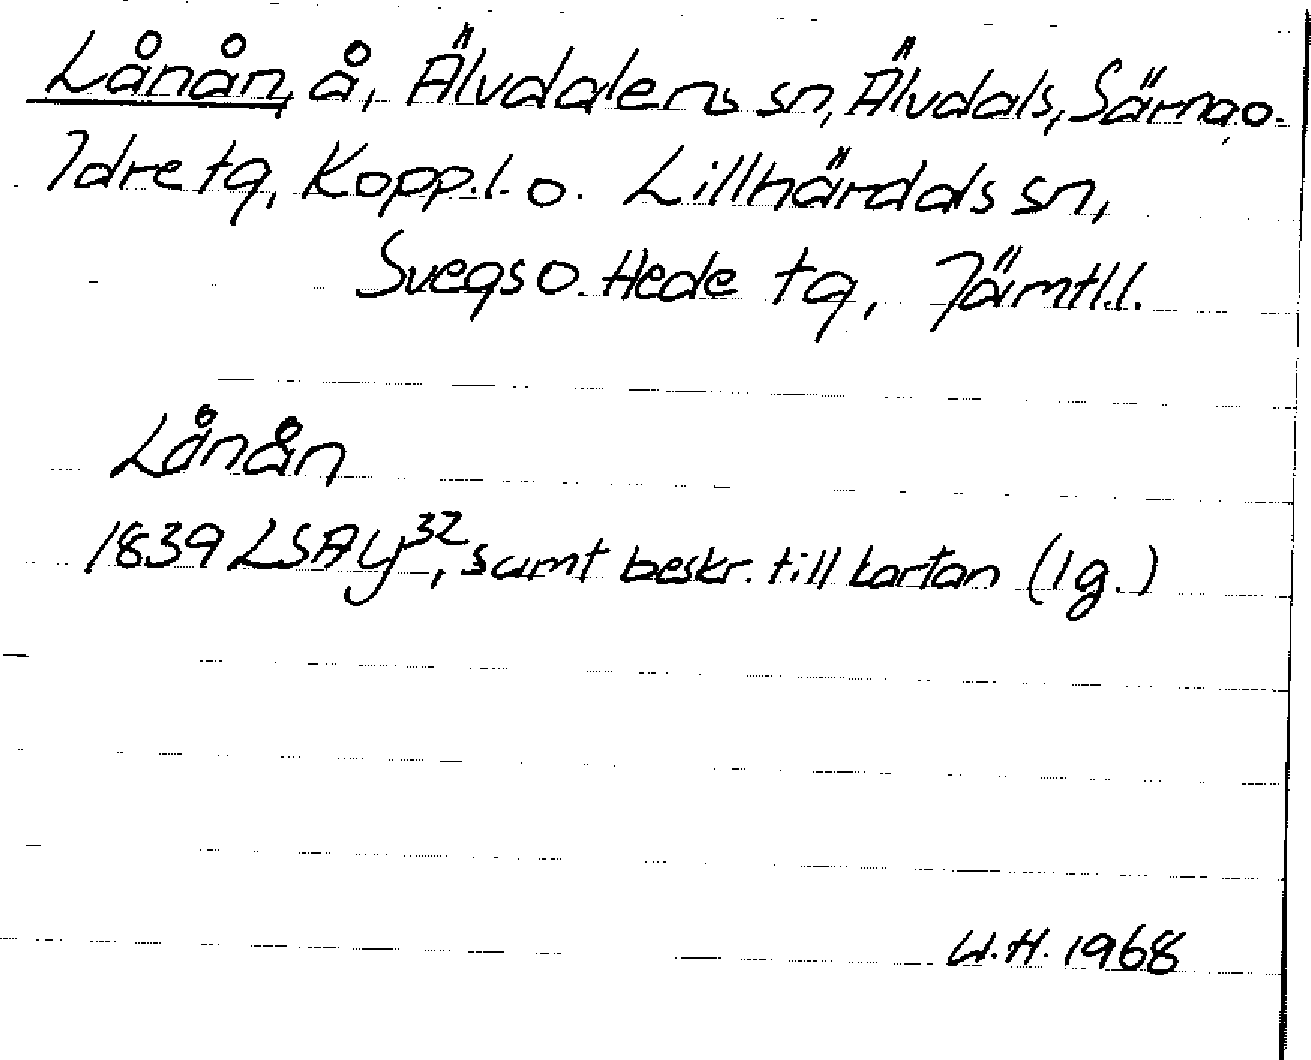 Lånån, å, Älvdalens sn, Älvdals, Särna o.
Idre tg, Kopp.l. o. Lillhärdals sn,
Svegs o. Hede tg, Jämtl.l.
Lånån
1839 LSA Y³², samt beskr. till kartan (1 g.)
U.H. 1968